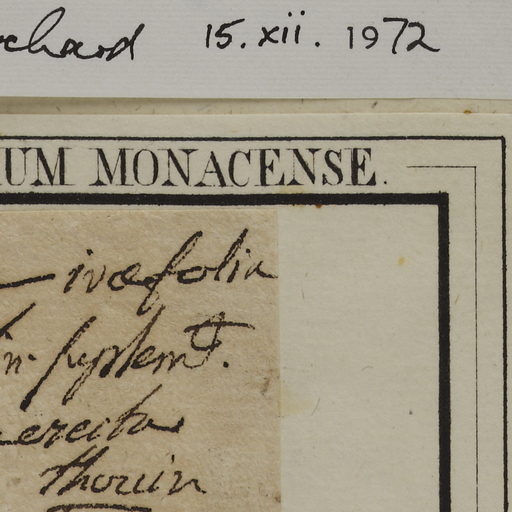 chard 15.xii.1972
UM MONACENSE.
— ivæfolia
in. systemt.
erecta
thouin